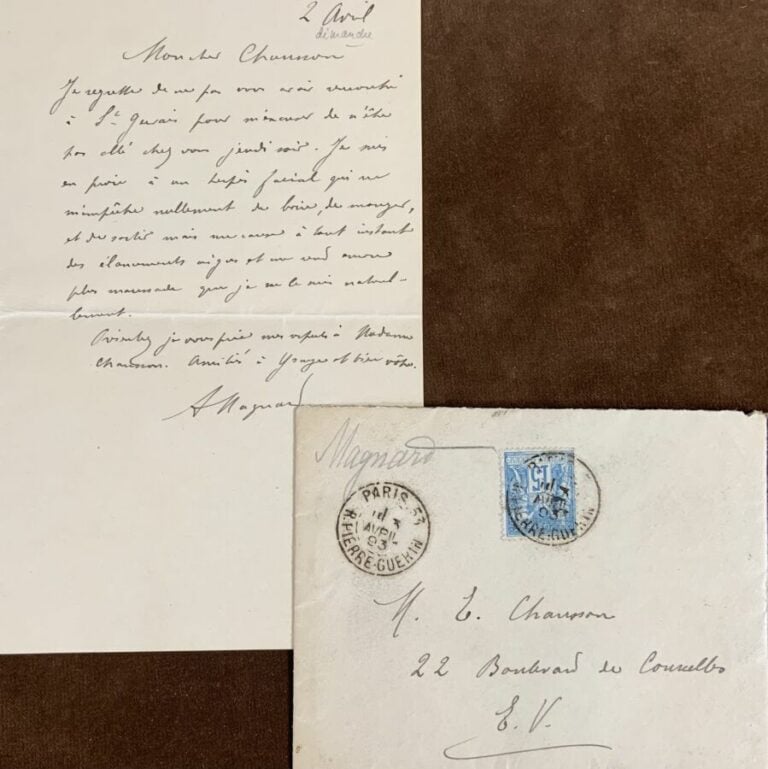 2 Avril
dimanche
Mon cher Chausson
Je regrette de ne pas vous avoir rencontré
à St Gervais pour m'excuser de n'être
pas allé chez vous jeudi soir. Je suis
en proie à un herpès facial qui ne
m'empêche nullement de boire, de manger,
et de sortir mais me cause à tout instant
des élancements aigus et me rend encore
plus maussade que je ne le suis naturel-
lement.
Présentez je vous prie mes respects à Madame
Chausson. Amitiés à Ysaye et bien vôtre.
A Magnard
Magnard
PARIS 53
AVRIL
93
R. PIERRE-GUERIN
15
AVRIL
93
PIERRE-GUERIN
M. E. Chausson
22 Boulevard de Courcelles
E. V.